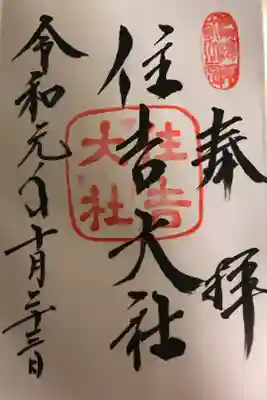 奉拝
住吉大社
住吉大社
令和元年十月二十三日